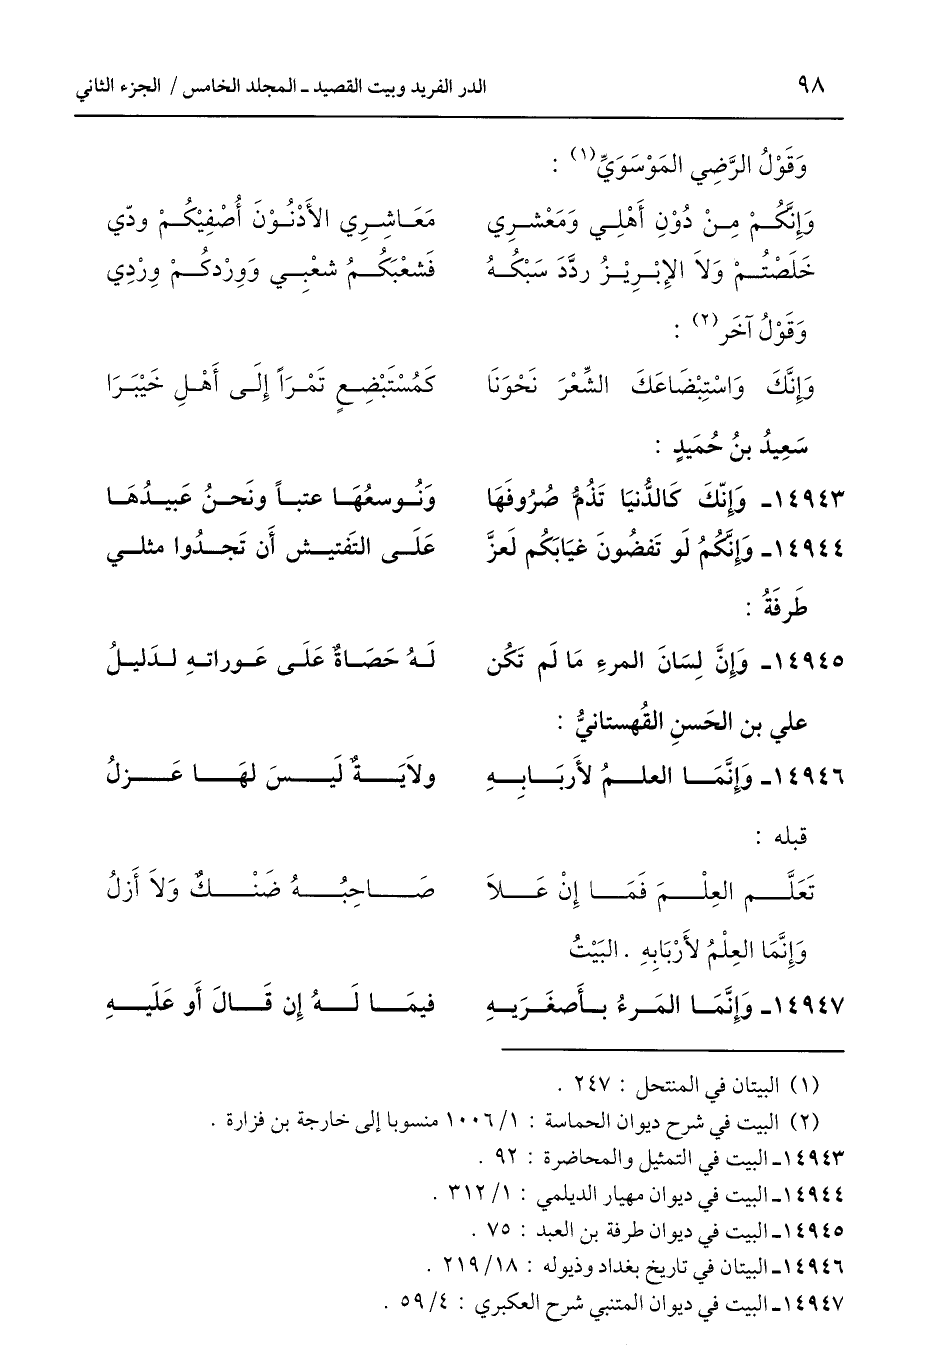 ٩٨ الدر الفريد وبيت القصيد ـ المجلد الخامس / الجزء الثاني
وَقَوْلُ الرَّضِي المَوْسَوَيِّ(١) :
وَإِنَّكُمْ مِنْ دُوْنِ أَهْلِي وَمَعْشرِي مَعَاشِرِي الأَدْنُوْنَ أُصْفِيْكُمْ ودّي
خَلَصْتُمْ وَلاَ الإِبْرِيْزُ ردَّدَ سَبْكُهُ فَشعْبَكُمُ شعْبِي وَوِرْدكُمْ وِرْدِي
وَقَوْلُ آخَر(٢) :
وَإِنَّكَ وَاسْتِبْضَاعَكَ الشِّعْرَ نَحْوَنَا كَمُسْتَبْضِعٍ تَمْرَاً إِلَى أَهْلِ خَيْبَرَا
سَعِيدُ بنُ حُمَيدٍ :
١٤٩٤٣ـ وَإِنَّكَ كَالدُّنيَا تَذُمُّ صُرُوفَهَا وَنُوسعُهَا عتباً ونَحنُ عَبيدُهَا
١٤٩٤٤ـ وَإِنَّكُمُ لَو تَفضُونَ غيَابَكُم لَعزَّ عَلَى التَفتيش أَن تَجدُوا مثلي
طَرفَةُ :
١٤٩٤٥ـ وَإِنَّ لِسَانَ المرءِ مَا لَم تَكُن لَهُ حَصَاةٌ عَلَى عَوراتهِ لدَليلُ
علي بن الحَسنِ القُهستانيُّ :
١٤٩٤٦ـ وَإِنَّمَا العلمُ لأَربَابِهِ ولاَيَةٌ لَيسَ لهَا عَزلُ
قبله :
تَعَلَّم العِلْمَ فَمَا إِنْ عَلاَ صَاحِبُهُ ضَنْكٌ وَلاَ أَزلُ
وَإِنَّمَا العِلْمُ لأَرْبَابِهِ . البَيْتُ
١٤٩٤٧ـ وَإِنَّمَا المَرءُ بأَصغَرَيهِ فيمَا لَهُ إِن قَالَ أَو عَلَيهِ
(١) البيتان في المنتحل : ٢٤٧ .
(٢) البيت في شرح ديوان الحماسة : ١/ ١٠٠٦ منسوبا إلى خارجة بن فزارة .
١٤٩٤٣ـ البيت في التمثيل والمحاضرة : ٩٢ .
١٤٩٤٤ـ البيت في ديوان مهيار الديلمي : ١/ ٣١٢ .
١٤٩٤٥ـ البيت في ديوان طرفة بن العبد : ٧٥ .
١٤٩٤٦ـ البيتان في تاريخ بغداد وذيوله : ١٨/ ٢١٩ .
١٤٩٤٧ـ البيت في ديوان المتنبي شرح العكبري : ٤/ ٥٩ .